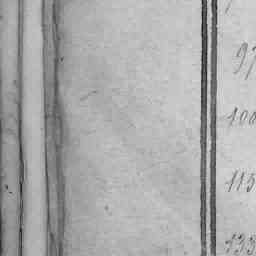 97
108
115
133